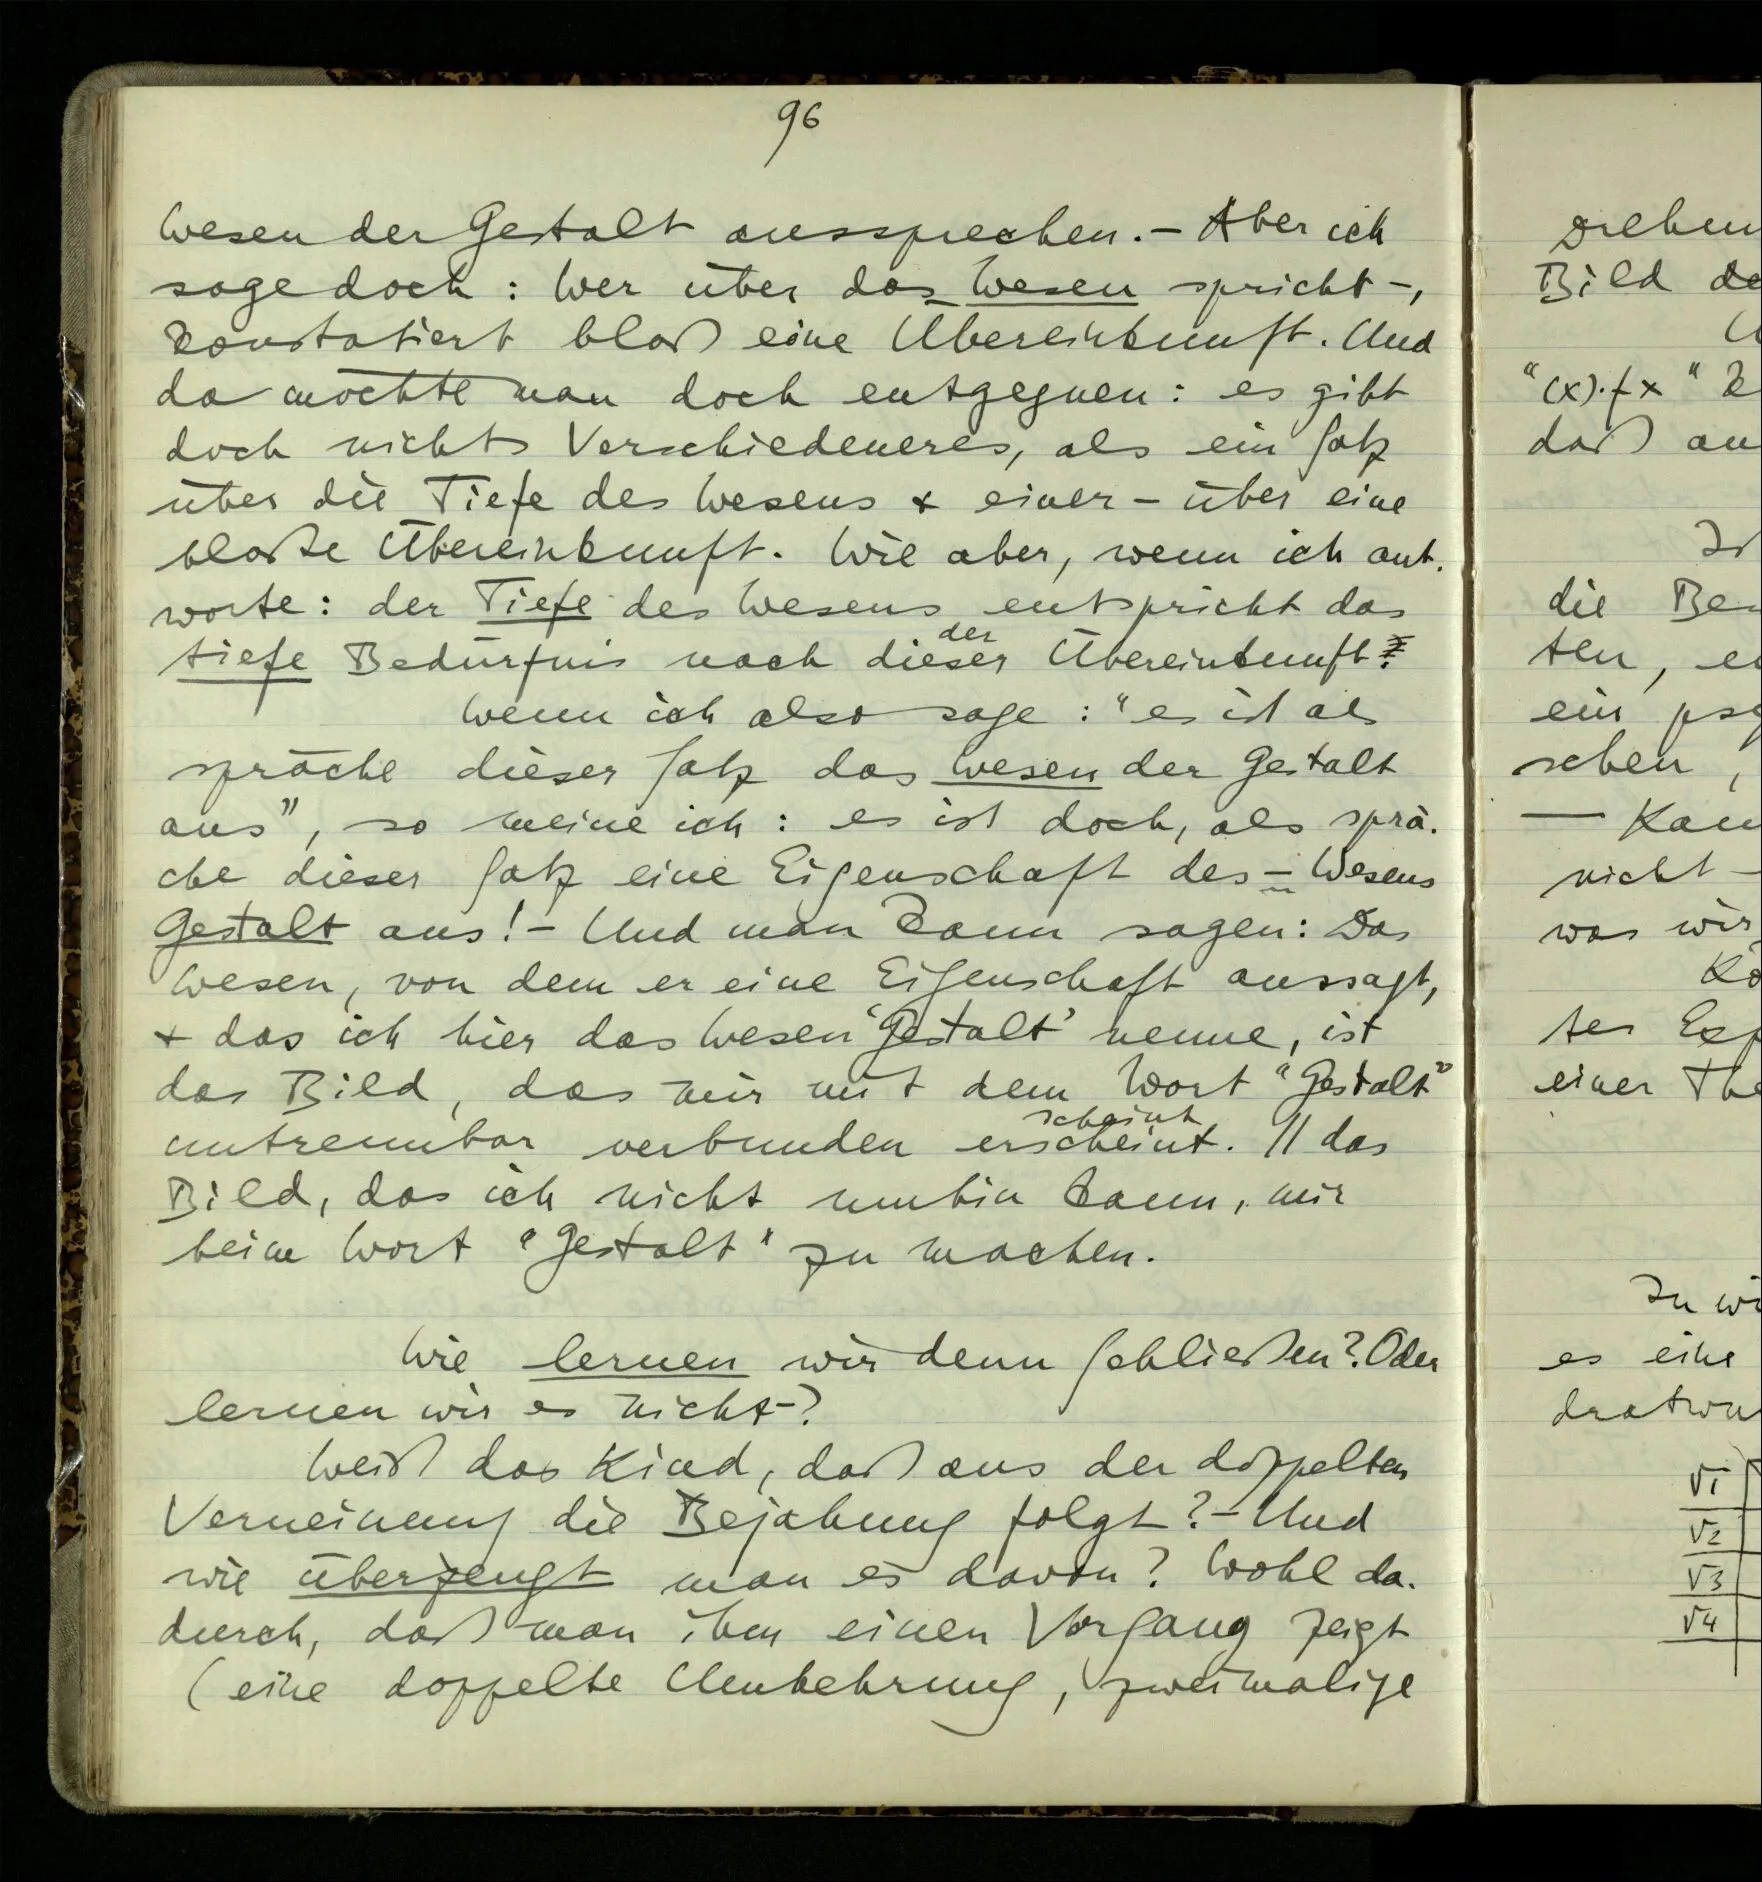 96
Wesen der Gestalt aussprechen. – Aber ich
sage doch: Wer über das Wesen spricht –,
konstatiert bloß eine Übereinkunft. Und
da möchte man doch entgegnen: es gibt
doch nichts Verschiedeneres, als ein Satz
über die Tiefe des Wesens & einer – über eine
bloße Übereinkunft. Wie aber, wenn ich ant-
worte: der Tiefe des Wesens entspricht das
der
tiefe Bedürfnis nach dieser Übereinkunft?
Wenn ich also sage: "es ist als
spräche dieser Satz das Wesen der Gestalt
aus", so meine ich: es ist doch, als sprä-
che dieser Satz eine Eigenschaft des – Wesens
Gestalt aus! – Und man kann sagen: Das
Wesen, von dem er eine Eigenschaft aussagt,
& das ich hier das Wesen 'Gestalt' nenne, ist
das Bild, das mir mit dem Wort "Gestalt"
scheint
untrennbar verbunden erscheint. // das
Bild, das ich nicht umhin kann, mir
beim Wort "Gestalt" zu machen.
Wie lernen wir denn schließen? Oder
lernen wir es nicht –?
Weiß das Kind, daß aus der doppelten
Verneinung die Bejahung folgt? – Und
wie überzeugt man es davon? Wohl da-
durch, daß man ihm einen Vorgang zeigt
(eine doppelte Umkehrung, zweimalige
Bild de
"(x).fx"
daß
die
ten,
ein
nicht –
was wir
einer
es eine
√1
√2
√3
√4